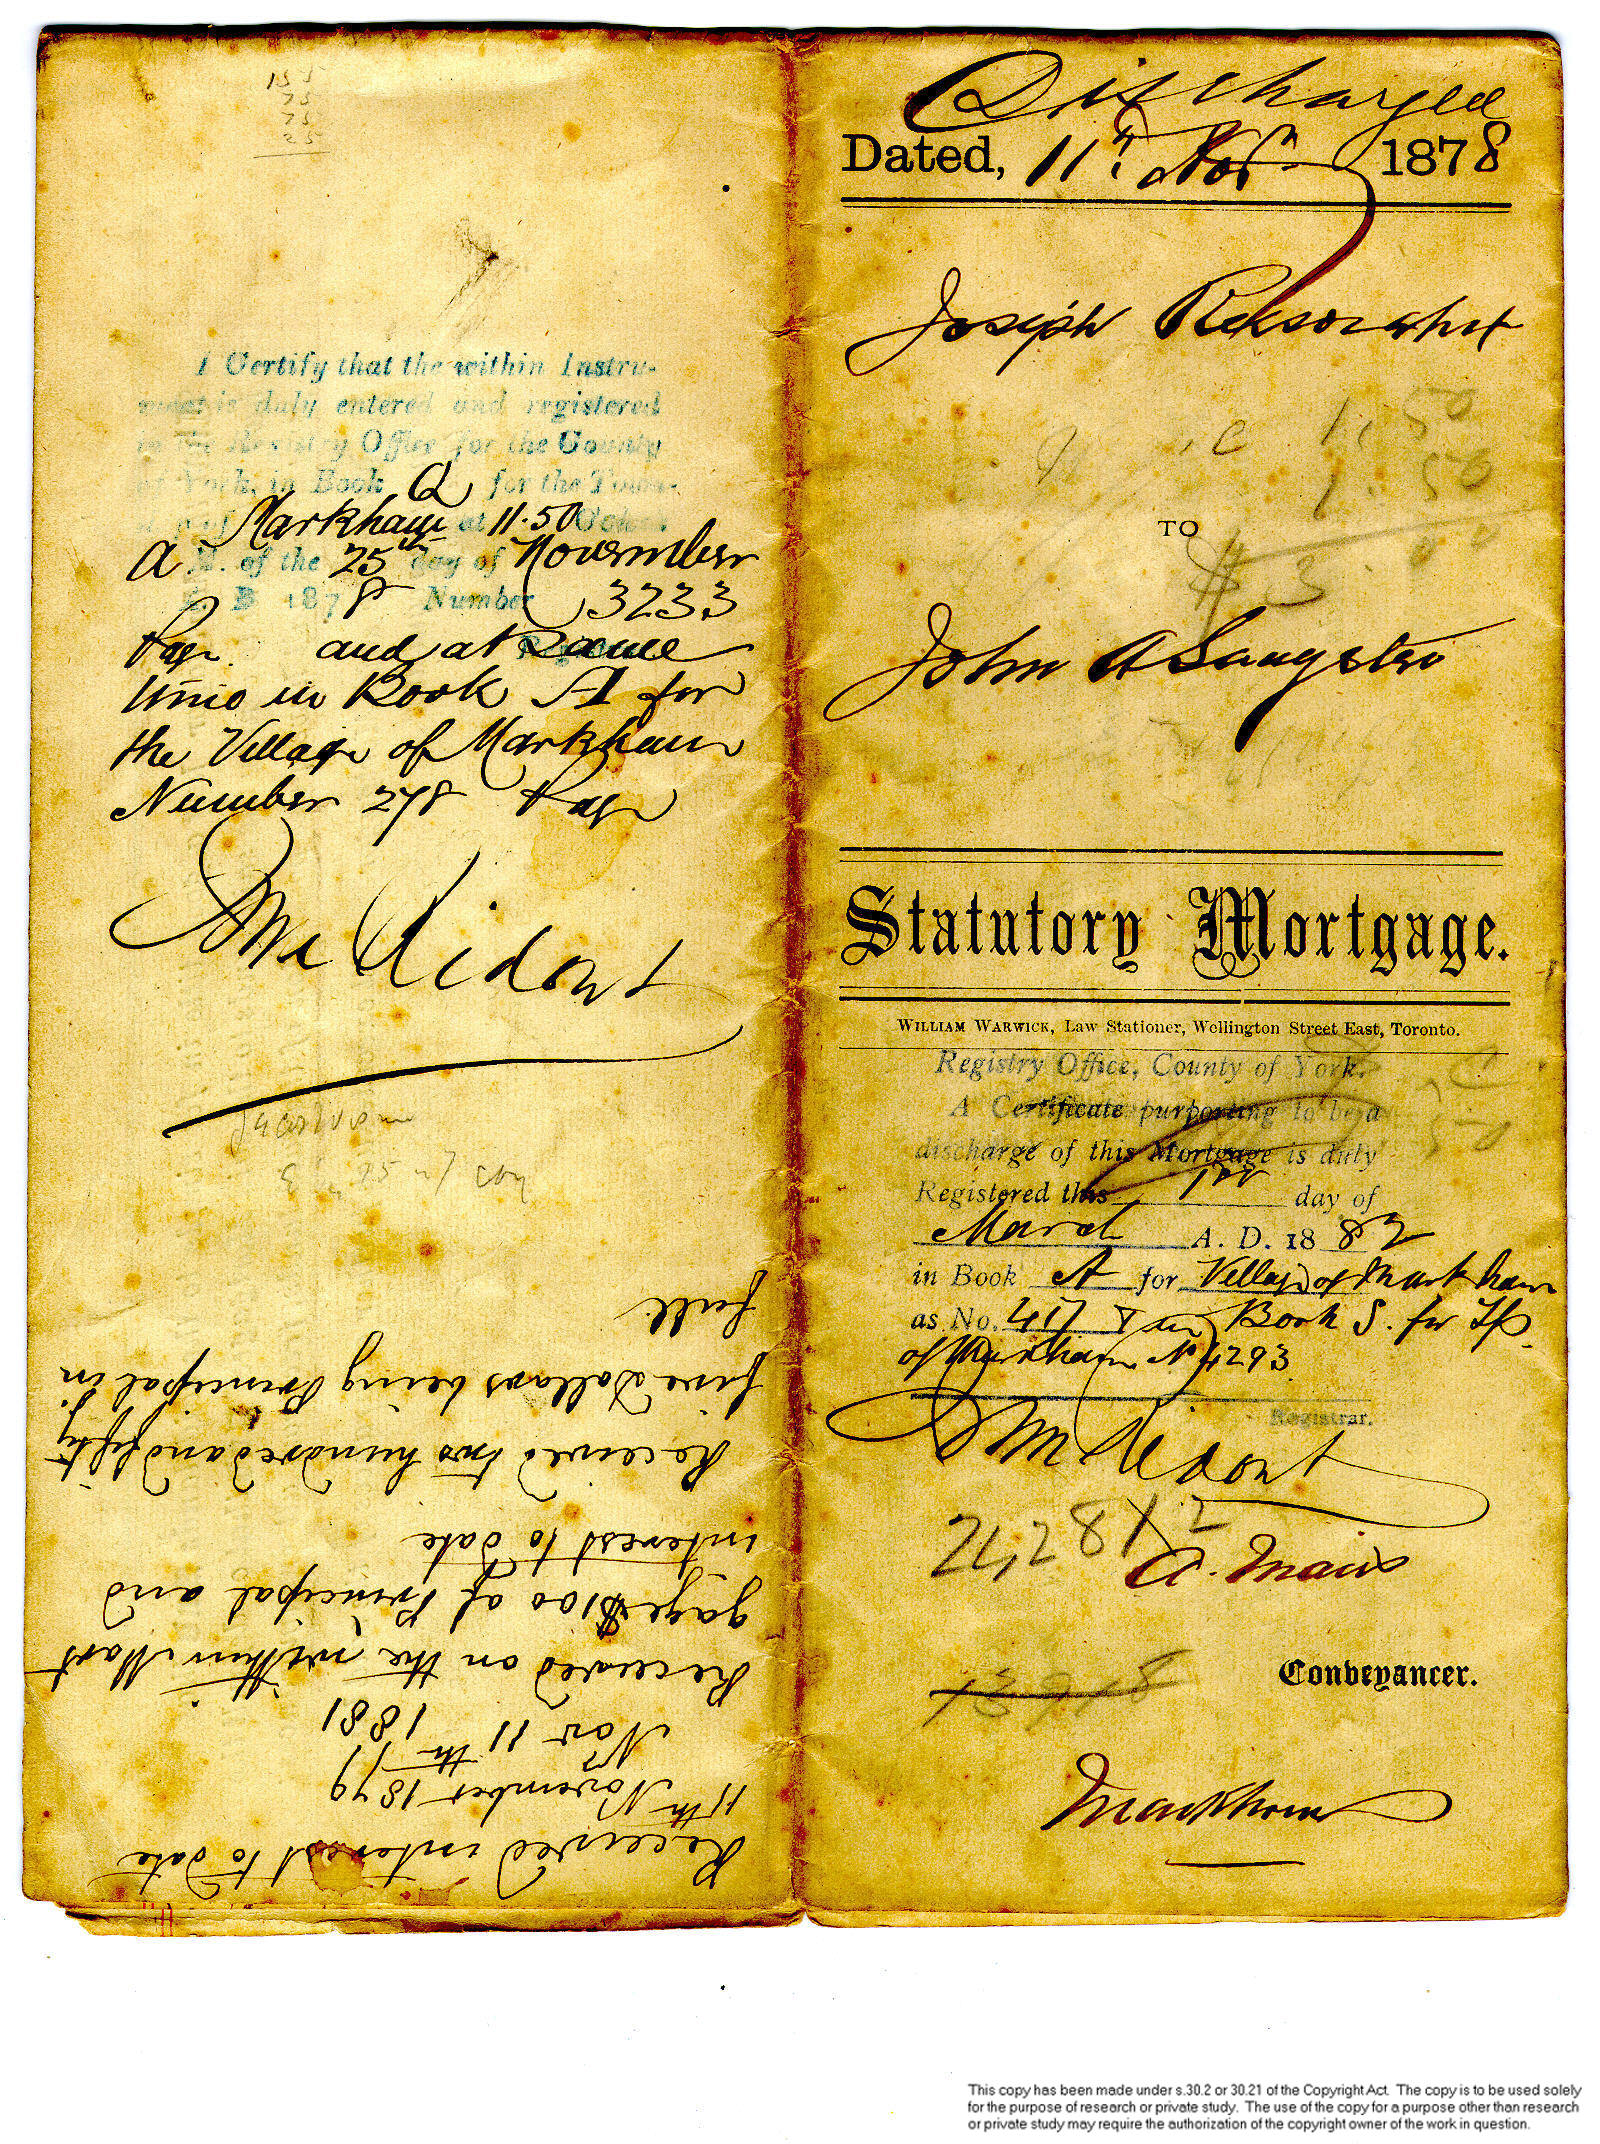 Discharged
Dated, 11th Nov 1878
Joseph
1.50
1.50
TO
$3.00
John A Sangster
Statutory Mortgage.
WILLIAM WARWICK, Law Stationer, Wellington Street East, Toronto.
Registry Office, County of York.
A Certificate purporting to be a
discharge of this Mortgage is duly
Registered this 1st day of
March A. D. 1882
in Book A for Village of Markham
as No. 417 & in Book S. for Tp
of Markham No 4293
Registrar.
Jno Ridout
A. Mairs
Conveyancer.
Markham
15
75
75
25
I Certify that the within Instru-
ment is duly entered and registered
in the Registry Office for the County
of York, in Book Q for the Town-
ship of Markham at 11.50 O'clock
A M. of the 25th day of November
A. D 1878 Number 3233
Page and at same
time in Book A for
the Village of Markham
Number 278 Page
Jno Ridout
Received interest to date
11th November 1879
Nov 11th 1881
Received on the within Mort
gage $100 of Principal and
interest to date
Received two hundred and fifty
five Dollars being Principal in
full
This copy has been made under s.30.2 or 30.21 of the Copyright Act. The copy is to be used solely
for the purpose of research or private study. The use of the copy for a purpose other than research
or private study may require the authorization of the copyright owner of the work in question.